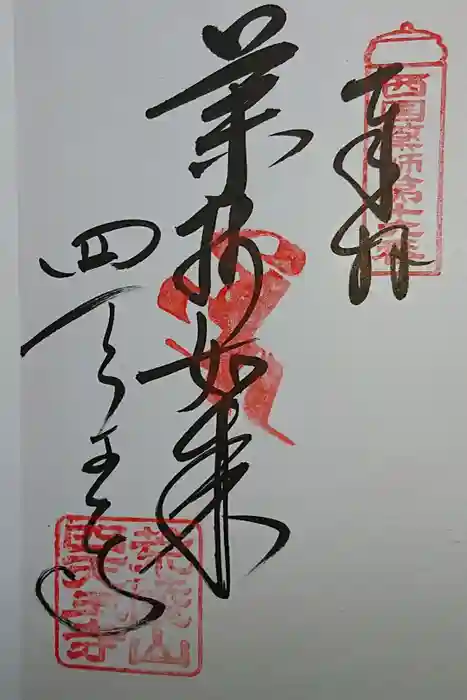 奉拝
薬師如来
四天王寺
西国薬師第十六番
荒陵山
四天王寺